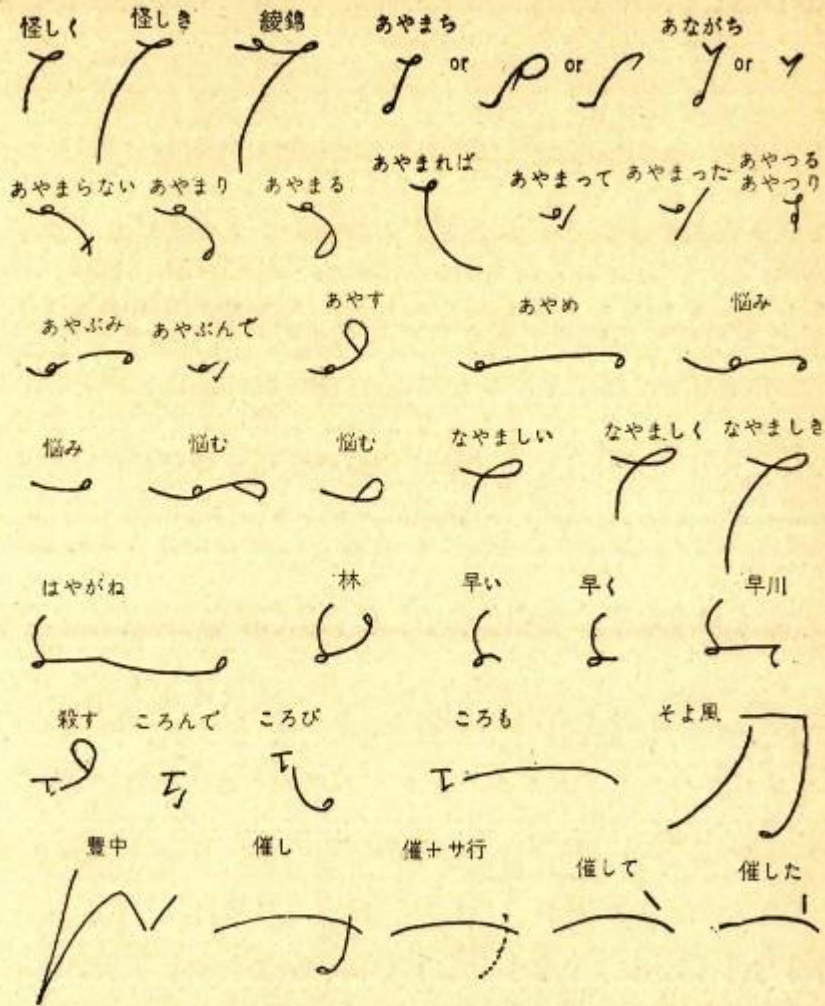 怪しく 怪しき 綾錦 あやまち あながち
or or or
あやまらない あやまり あやまる あやまれば あやまって あやまった あやつる
あやつり
あやぶみ あやぶんで あやす あやめ 悩み
悩み 悩む 悩む なやましい なやましく なやましき
はやがね 林 早い 早く 早川
殺す ころんで ころび ころも そよ風
豊中 催し 催+サ行 催して 催した